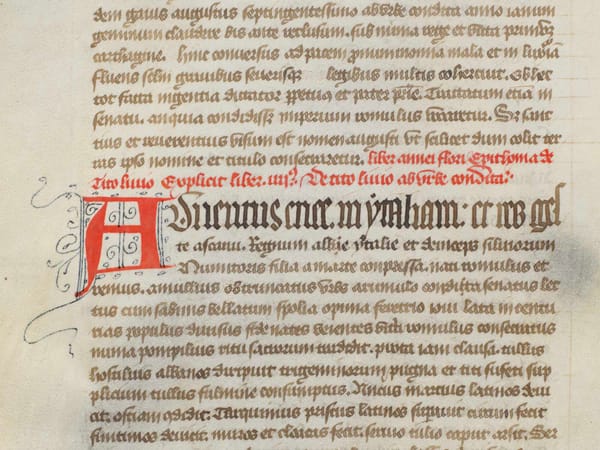 dem gavis augustus septingentessimo aburbe condita anno ianum
geminum claudere bis ante verlusum. sub numa rege et victa primum
carthagine. hinc conversus ad pacem pronum in omnia mala et in luxuriam
fluens seculum gravibus severisque legibus multis cohercuit. Ob hec
tot facta ingentia dictator perpetuus et pater patrie. Tractatum etiam in
senatu. an quia condidisset imperium romulus vocaretur. Sed sanc
tius et reverentius visum est nomen augusti ut scilicet dum colit ter
ras ipso nomine et titulo consecraretur. liber annei flori Epithoma de
Tito livio Explicit liber .iiii. De tito livio ab urbe condita.
Adventus enee in ytaliam. et res ges
te ascanii. Regnum albe ytalie et deinceps silviorum
Numitoris filia a marte conpressa. nati romulus et
remus. amullius obtruncatus urbs a romulo condita senatus lec
tus cum sabinis bellatum spolia opima feretrio iovi lata in centu
rias populus divisus fidenates veientes victi romulus consecratus
numa pompilius ritus sacrorum tradidit. porta iani clausa. tullus
hostilius albanos diripuit trigeminorum pugna et titi sufeti sup
plicium tullus fulmine consumptus. Ancus marcius latinos devi
cit. ostiam condidit. Tarquinius priscus latinos superavit circum fecit
finitimos devicit. muros et cloacas fecit. servio tulio caput arsit. Ser